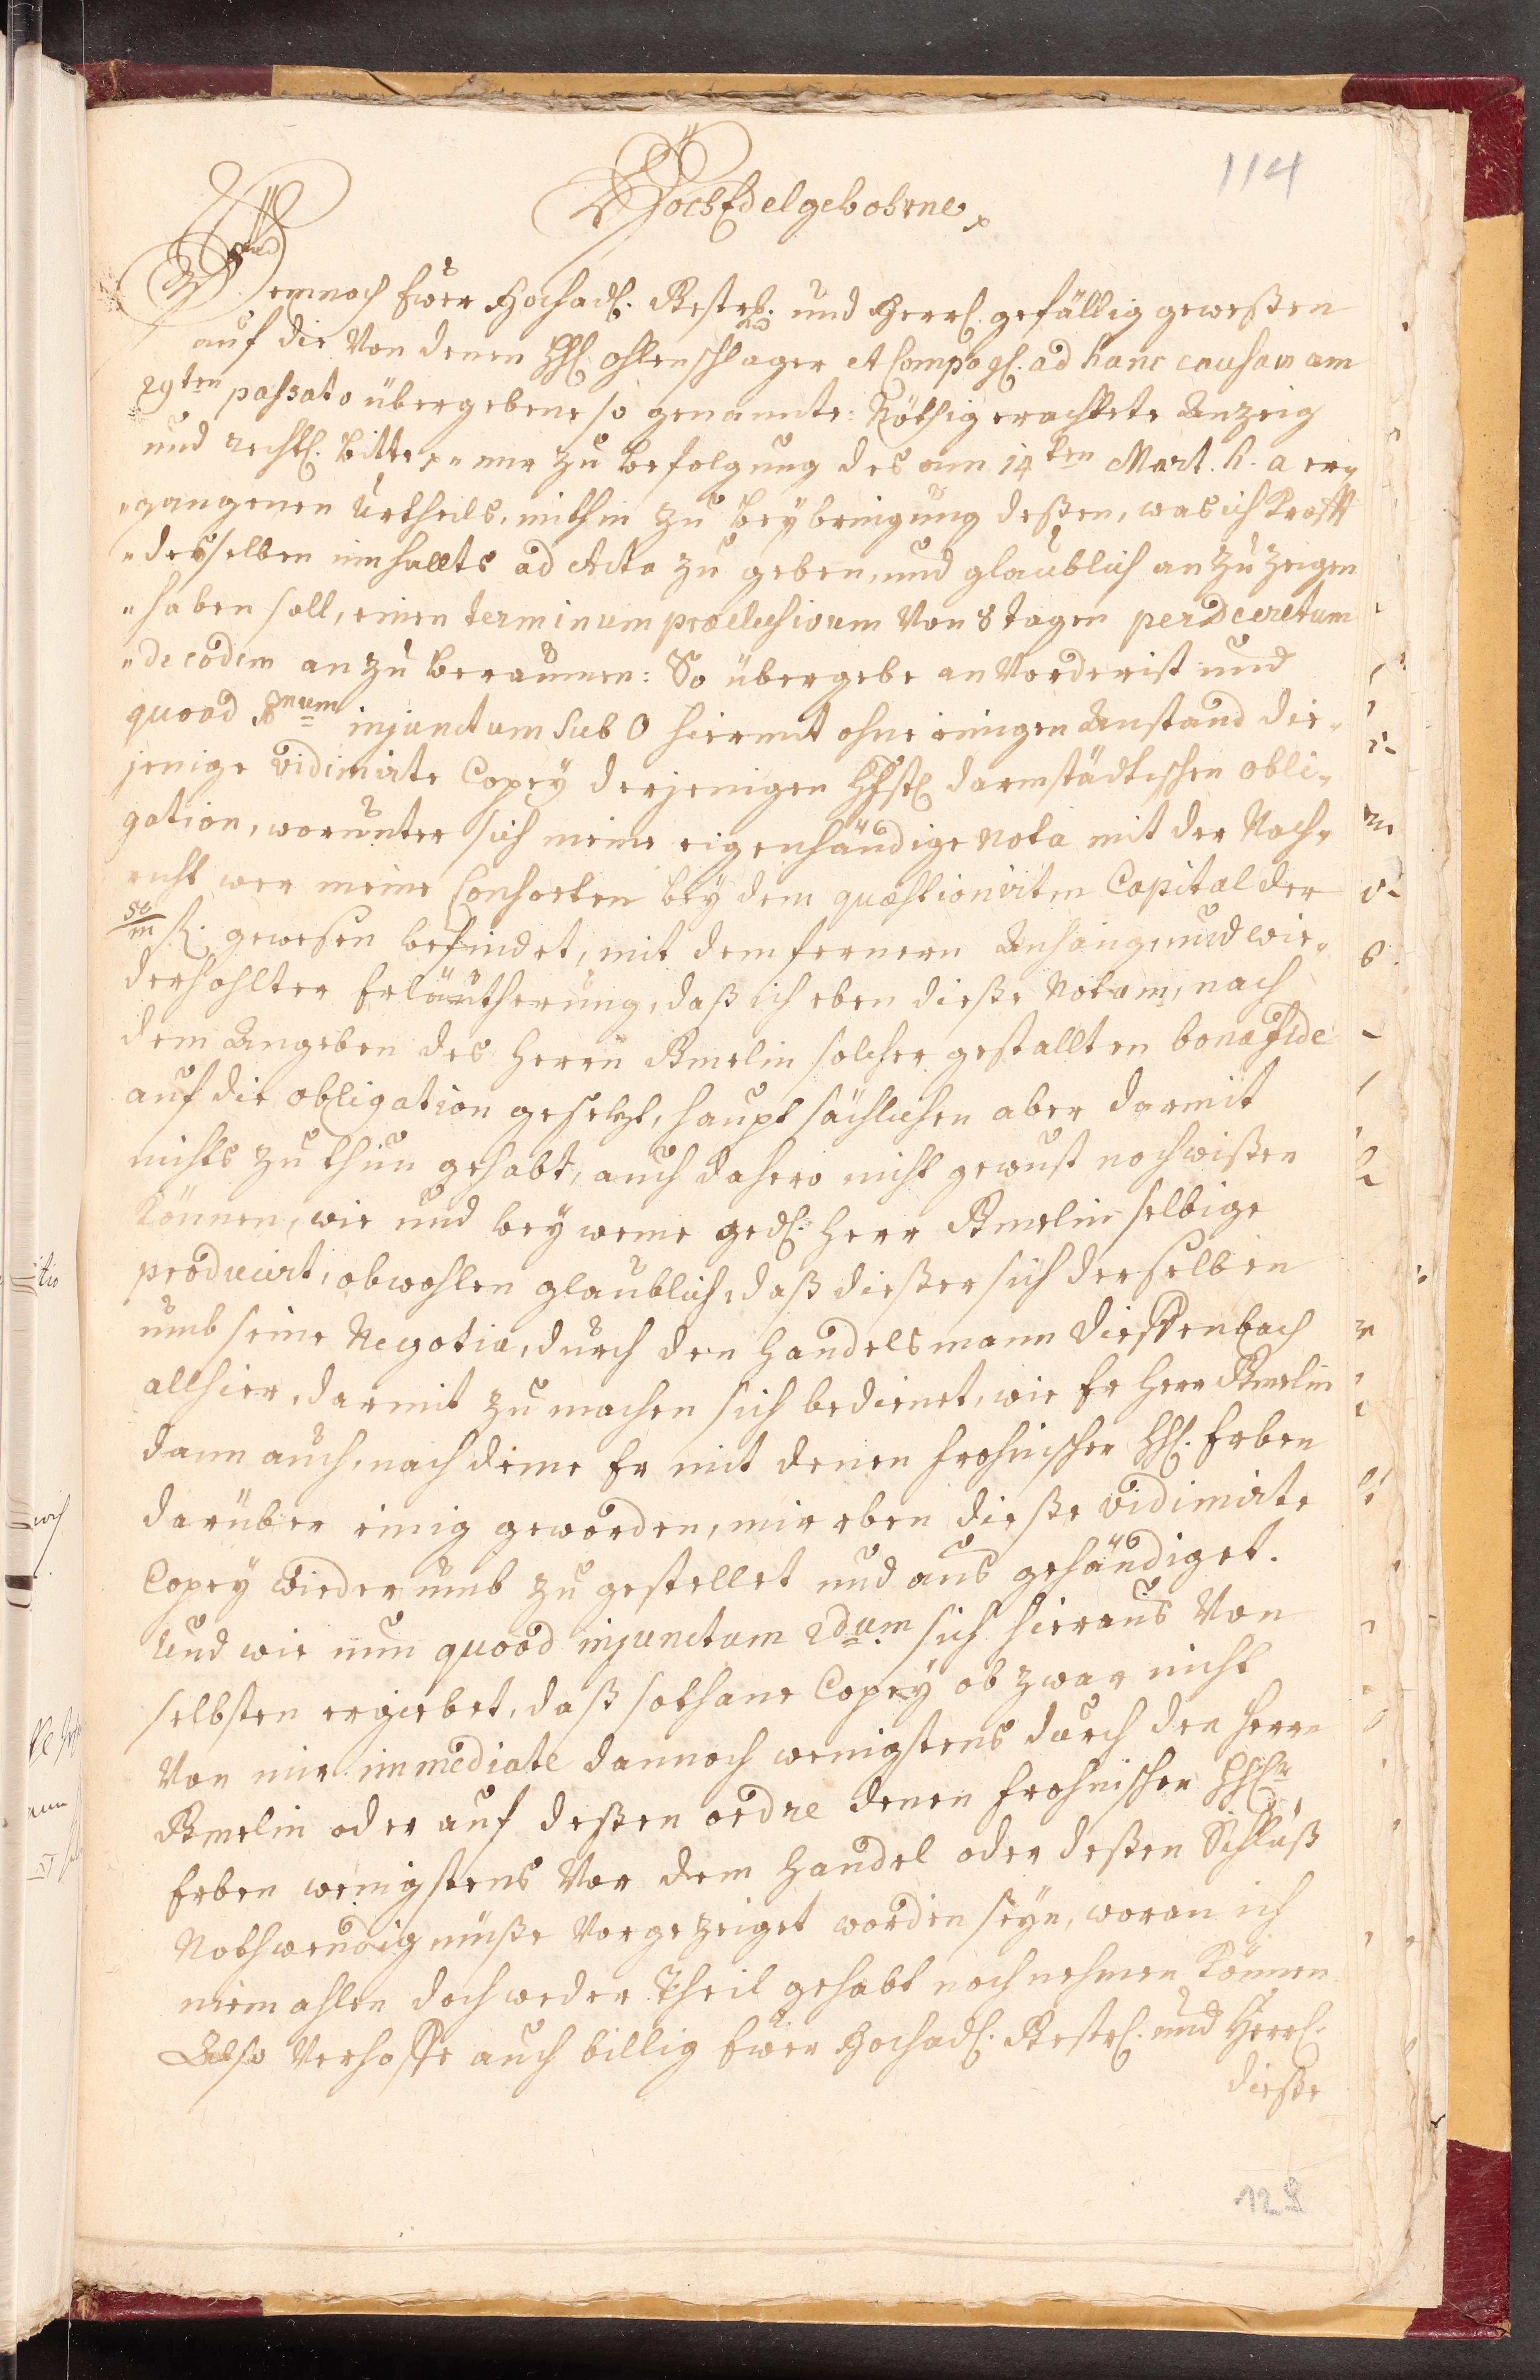 114
HochEdelgebohrne
Demnach Ewer Hochadl. Gestrl. und Herrl. gefällig geweßen
auf die von denen HH. Ohlenschlager et Comp ad hanc causam am
29ten passato übergebene so genannte: Nöthig erachtete Anzeig
und rechtl. Bitte mir zu befolgung des am 14ten Mart. h. a er„
„gangenen Urtheils, mithin zu beybringung deßen, was ich Krafft
„deßelben innhallts ad Acta zu geben, und glaublich anzuzeigen
„haben soll, einen terminum praeclusivum von 8 tagen per Decretum
„de eodem anzuberaumen: So übergebe an vorderist und
quoad injunctum sub O hiermit ohne einigen Anstand die„
jenige vidimirte Copey derjenigen Hfstl darmstädtischen obli„
gation, worunter sich meine eigenhändige Nota mit der Nach„
richt wer meine Consorten bey dem quaestionirten Capital der
50/m fl. gewesen befindet, mit dem fernern Anhang und wie„
derhohlter Erläutherung, daß ich eben dieße Notam, nach
dem Angeben des Herrn Gmelin solcher gestallten bona fide
auf die obligation gesetzt, hauptsächlichen aber darmit
nichts zu thun gehabt, auch dahero nicht gewust noch wißen
können, wie und bey weme gedl. Herr Gmelin selbige
producirt, obwohlen glaublich, daß dießer sich derselben
umb seine Negotia, durch den Handelsmann Dieffenbach
allhier, darmit zu machen sich bedienet, wie Er Herr Gmelin
dann auch, nach deme Er mit denen Frohnischen HH. Erben
darüber einig geworden, mir eben dieße vidimirte
Copey wiederumb zu gestellet und aus gehändiget.
Und wie nun quoad injunctum 2dum sich hieraus von
selbsten ergiebet, daß sothane Copey ob zwar nicht
von mir immediate dannoch wenigstens durch den Herrn
Gmelin oder auf deßen ordre denen Frohnischen HHn
Erben wenigstens vor dem Handel oder deßen Schluß
Nothwendig müße vorgezeiget worden seyn, woran ich
niemahlen doch weder Theil gehabt noch nehmen können
Also verhoffe auch billig Ewer Hochadl. Gestrl. und Herrl.
dieße